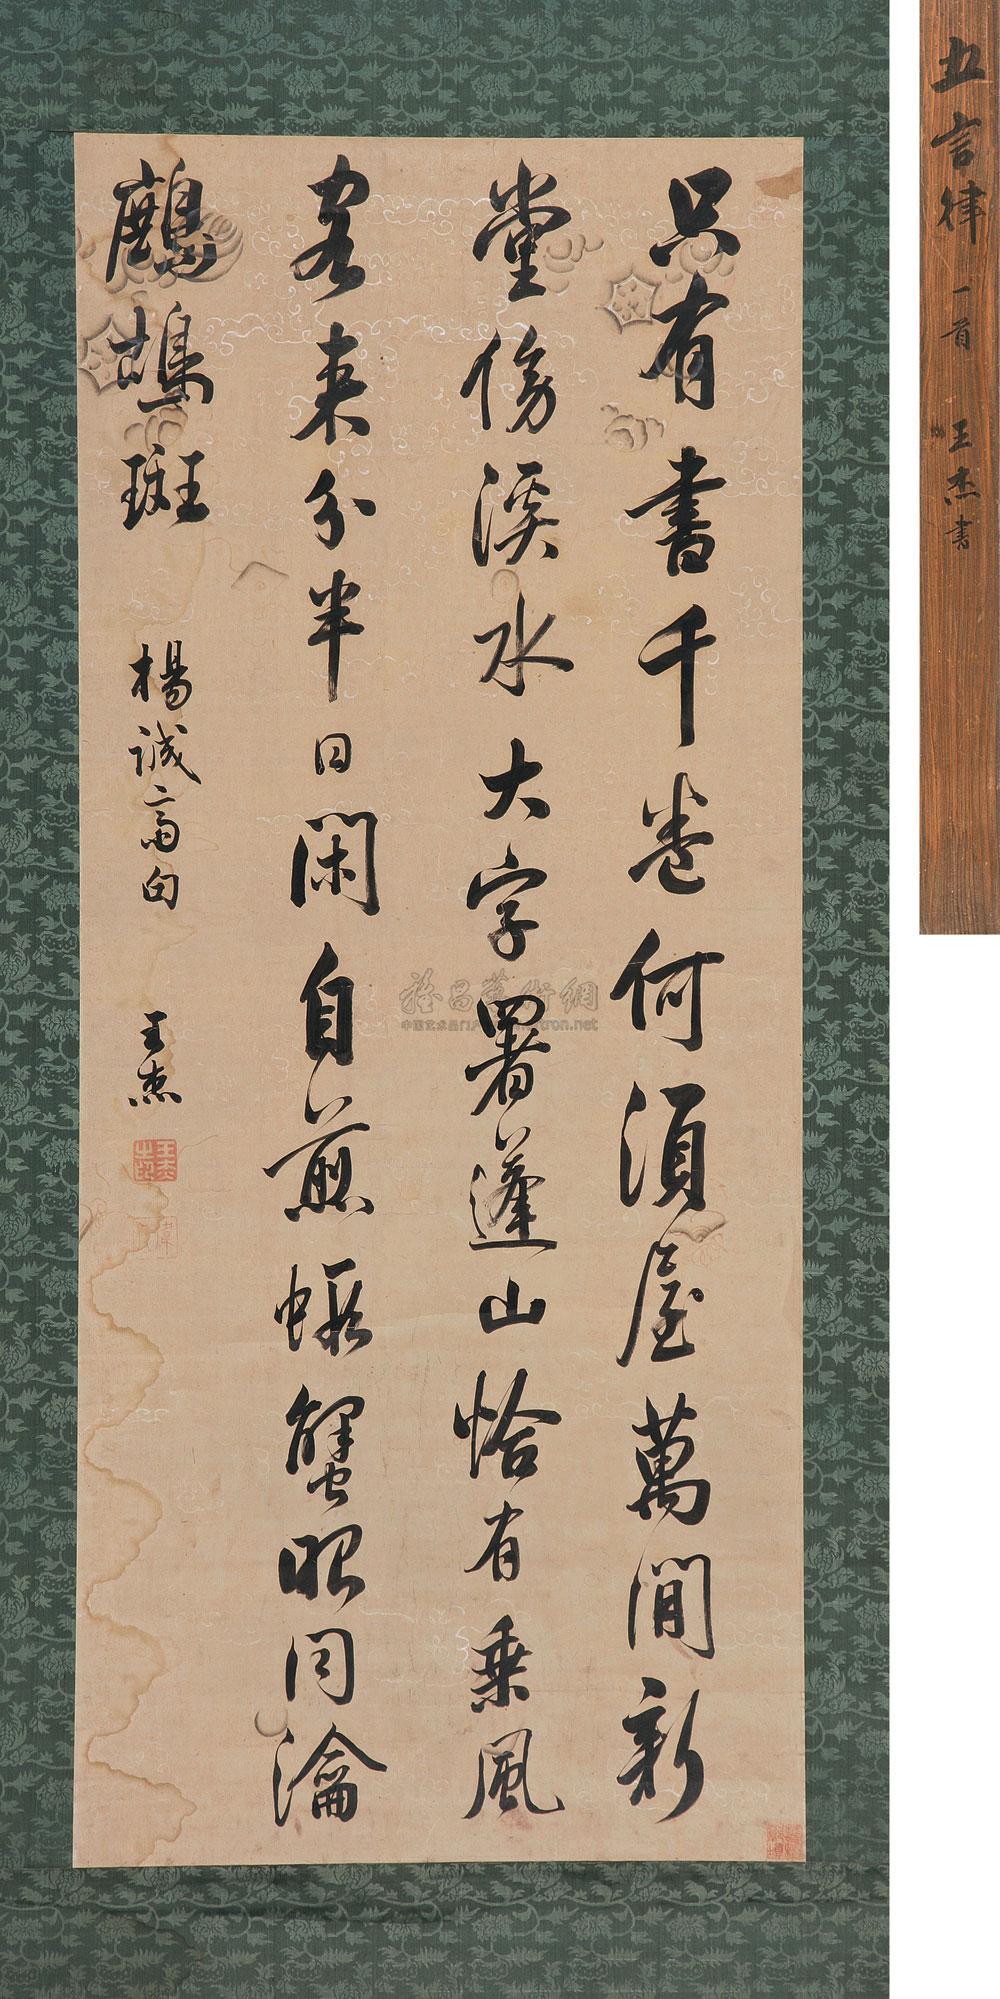 只有書千卷何須屋萬間新
堂傍溪水大字署蓬山恰有乘風
客來分半日閑自煎蝦蟹眼同瀹
鷓鴣斑
楊誠齋句
王杰
王杰之印
五言律一首 王杰書
雅昌艺术网